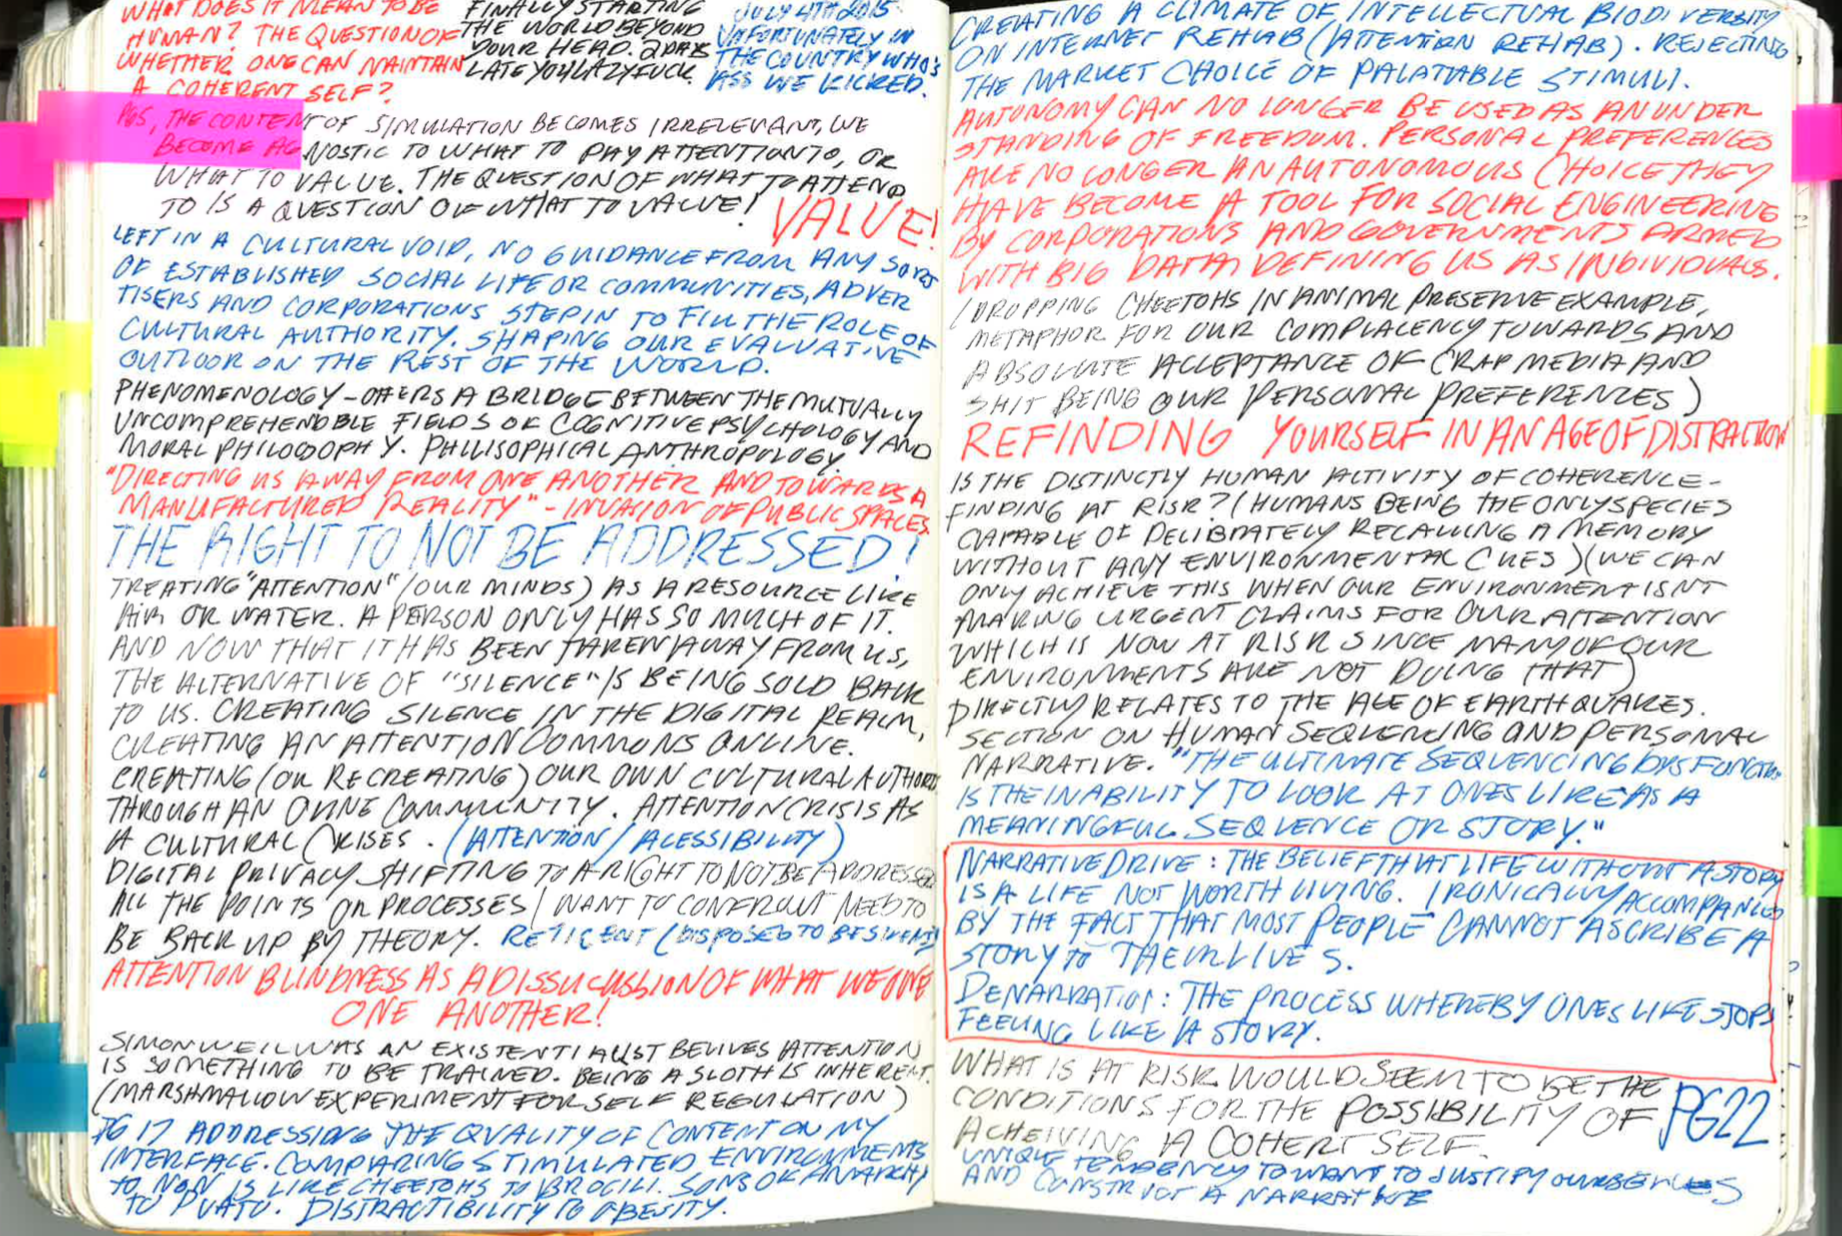 WHAT DOES IT MEAN TO BE
HUMAN? THE QUESTION OF
WHETHER ONE CAN MAINTAIN
A COHERENT SELF?
FINALLY STARTING
THE WORLD BEYOND
YOUR HEAD. 2 DAYS
LATE YOU LAZY FUCK.
JULY 4TH 2015
UNFORTUNATELY IN
THE COUNTRY WHO'S
ASS WE KICKED.
THE CONTENT OF SIMULATION BECOMES IRRELEVANT, WE
BECOME AGNOSTIC TO WHAT TO PAY ATTENTION TO, OR
WHAT TO VALUE. THE QUESTION OF WHAT TO ATTEND
TO IS A QUESTION OF WHAT TO VALUE! VALUE!
LEFT IN A CULTURAL VOID, NO GUIDANCE FROM ANY SORTS
OF ESTABLISHED SOCIAL LIFE OR COMMUNITIES, ADVER
TISERS AND CORPORATIONS STEP IN TO FILL THE ROLE OF
CULTURAL AUTHORITY. SHAPING OUR EVALUATIVE
OUTLOOK ON THE REST OF THE WORLD.
PHENOMENOLOGY - OFFERS A BRIDGE BETWEEN THE MUTUALLY
UNCOMPREHENDBLE FIELDS OF COGNITIVE PSYCHOLOGY AND
MORAL PHILOSOPHY. PHILISOPHICAL ANTHROPOLOGY.
"DIRECTING US AWAY FROM ONE ANOTHER AND TOWARDS A
MANUFACTURED REALITY" - INVASION OF PUBLIC SPACES.
THE RIGHT TO NOT BE ADDRESSED!
TREATING "ATTENTION" (OUR MINDS) AS A RESOURCE LIKE
AIR OR WATER. A PERSON ONLY HAS SO MUCH OF IT.
AND NOW THAT IT HAS BEEN TAKEN AWAY FROM US,
THE ALTERNATIVE OF "SILENCE" IS BEING SOLD BACK
TO US. CREATING SILENCE IN THE DIGITAL REALM,
CREATING AN ATTENTION COMMONS ONLINE.
CREATING (OR RECREATING) OUR OWN CULTURAL AUTHORITY
THROUGH AN ONLINE COMMUNITY. ATTENTION CRISIS AS
A CULTURAL CRISES. (ATTENTION / ACESSIBILITY)
DIGITAL PRIVACY SHIFTING TO A RIGHT TO NOT BE ADDRESSED
ALL THE POINTS OR PROCESSES I WANT TO CONFRONT NEED TO
BE BACK UP BY THEORY. RETICENT (DISPOSED TO BE SILENT)
ATTENTION BLINDNESS AS A DISSUCUSSION OF WHAT WE OWE
ONE ANOTHER!
SIMON WEIL WAS AN EXISTENTIALIST BELIVES ATTENTION
IS SOMETHING TO BE TRAINED. BEING A SLOTH IS INHERENT.
(MARSHMALLOW EXPERIMENT FOR SELF REGULATION)
PG 17 ADDRESSING THE QUALITY OF CONTENT ON MY
INTERFACE. COMPARING STIMULATED ENVIRONMENTS
TO NON IS LIKE CHEETOHS TO BROCILI. SONS OF ANARCHY
TO PLATO. DISTRACTIBILITY TO OBESITY.
CREATING A CLIMATE OF INTELLECTUAL BIODIVERSITY
ON INTERNET REHAB (ATTENTION REHAB). REJECTING
THE MARKET CHOICE OF PALATABLE STIMULI.
AUTONOMY CAN NO LONGER BE USED AS AN UNDER
STANDING OF FREEDOM. PERSONAL PREFERENCES
ARE NO LONGER AN AUTONOMOUS CHOICE THEY
HAVE BECOME A TOOL FOR SOCIAL ENGINEERING
BY CORPORATIONS AND GOVERNMENTS ARMED
WITH BIG DATA DEFINING US AS INDIVIDUALS.
(DROPPING CHEETOHS IN ANIMAL PRESERVE EXAMPLE,
METAPHOR FOR OUR COMPLACENCY TOWARDS AND
ABSOLUTE ACCEPTANCE OF CRAP MEDIA AND
SHIT BEING OUR PERSONAL PREFERENCES)
REFINDING YOURSELF IN AN AGE OF DISTRACTION
IS THE DISTINCTLY HUMAN ACTIVITY OF COHERENCE-
FINDING AT RISK? (HUMANS BEING THE ONLY SPECIES
CAPABLE OF DELIBRATELY RECALLING A MEMORY
WITHOUT ANY ENVIRONMENTAL CUES) (WE CAN
ONLY ACHIEVE THIS WHEN OUR ENVIRONMENT ISN'T
MAKING URGENT CLAIMS FOR OUR ATTENTION
WHICH IS NOW AT RISK SINCE MANY OF OUR
ENVIRONMENTS ARE NOT DOING THAT)
DIRECTLY RELATES TO THE AGE OF EARTHQUAKES.
SECTION ON HUMAN SEQUENCING AND PERSONAL
NARRATIVE. "THE ULTIMATE SEQUENCING DYSFUNCTION
IS THE INABILITY TO LOOK AT ONES LIFE AS A
MEANINGFUL SEQUENCE OR STORY."
NARRATIVE DRIVE: THE BELIEF THAT LIFE WITHOUT A STORY
IS A LIFE NOT WORTH LIVING. IRONICALLY ACCOMPANIED
BY THE FACT THAT MOST PEOPLE CANNOT ASCRIBE A
STORY TO THEIR LIVES.
DENARRATION: THE PROCESS WHEREBY ONES LIFE STOPS
FEELING LIKE A STORY.
WHAT IS AT RISK WOULD SEEM TO BE THE
CONDITIONS FOR THE POSSIBILITY OF
ACHEIVING A COHERT SELF. PG 22
UNIQUE TENDENCY TO WANT TO JUSTIFY OURSELVES
AND CONSTRUCT A NARRATIVE